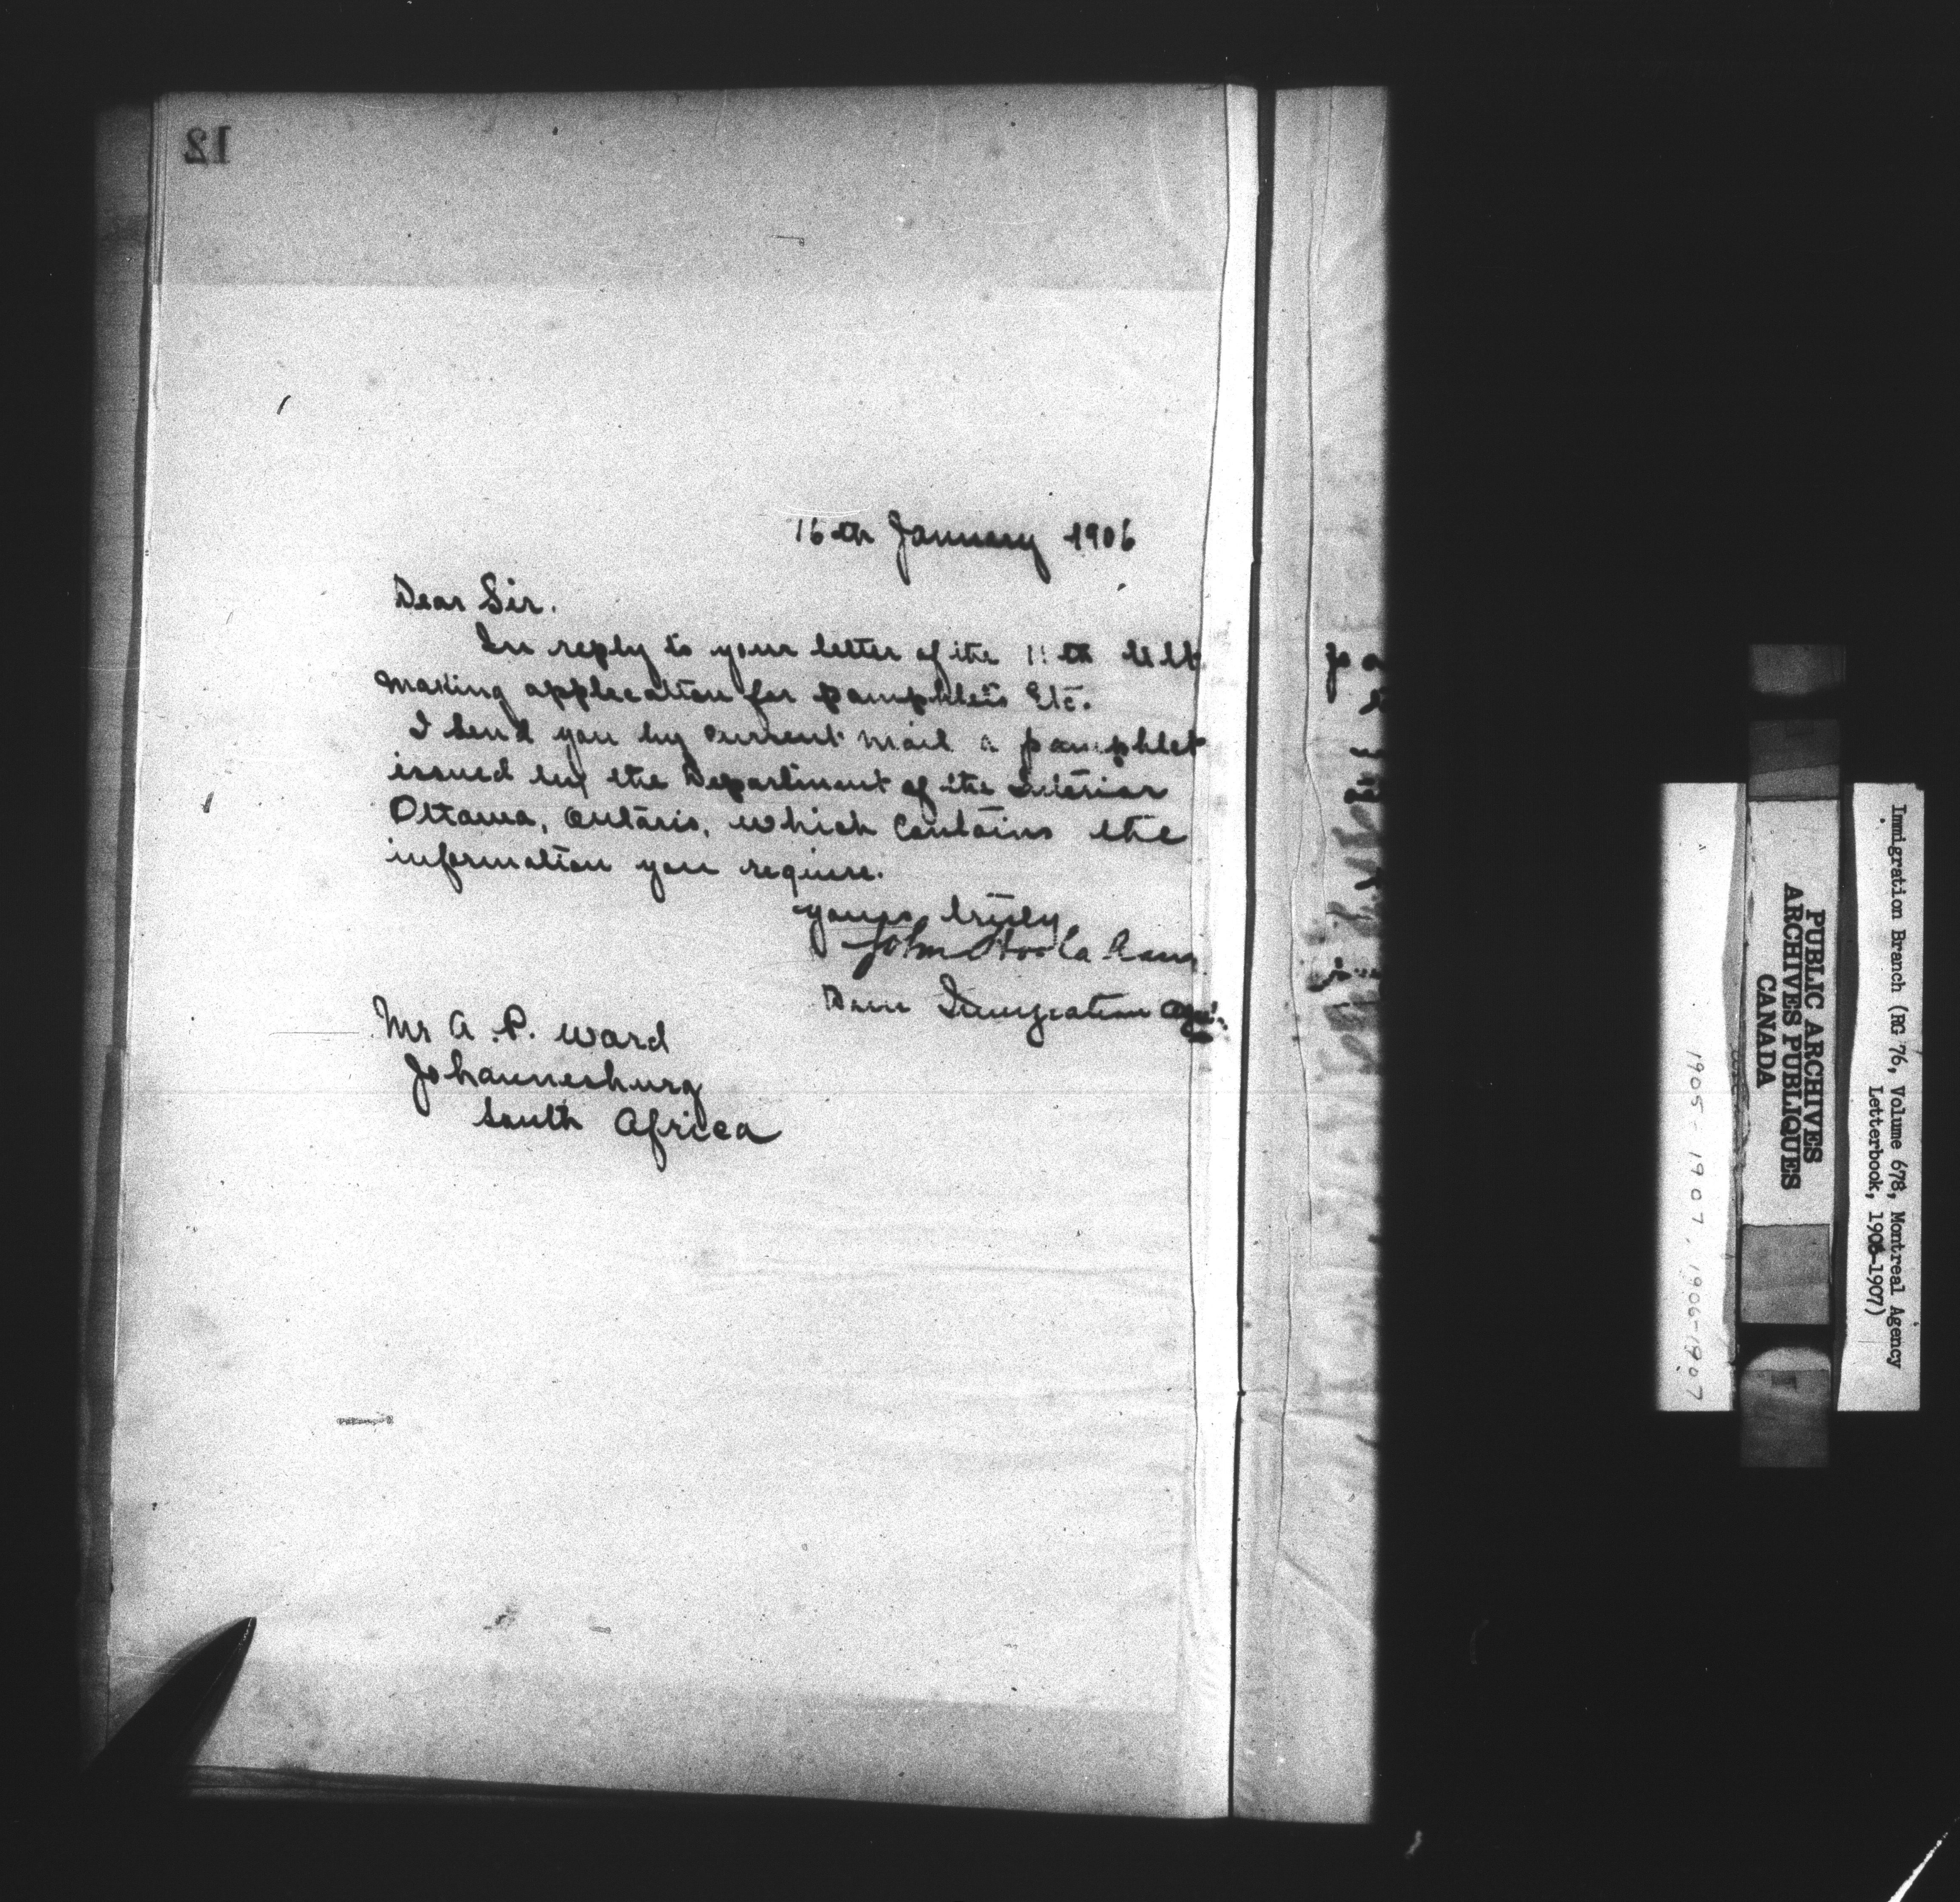 12
16th January 1906
Dear Sir.
In reply to your letter of the 11th Ult
making application for pamphlets Etc.
I send you by current mail a pamphlet
issued by the Department of the Interior
Ottawa, Ontario, which contains the
information you require.
yours truly
John Hoolahan
Dom Immigration Agt.
Mr A. P. Ward
Johannesburg
South Africa
Immigration Branch (RG 76, Volume 678, Montreal Agency
Letterbook, 1906-1907)
PUBLIC ARCHIVES
ARCHIVES PUBLIQUES
CANADA
1905-1907, 1906-1907